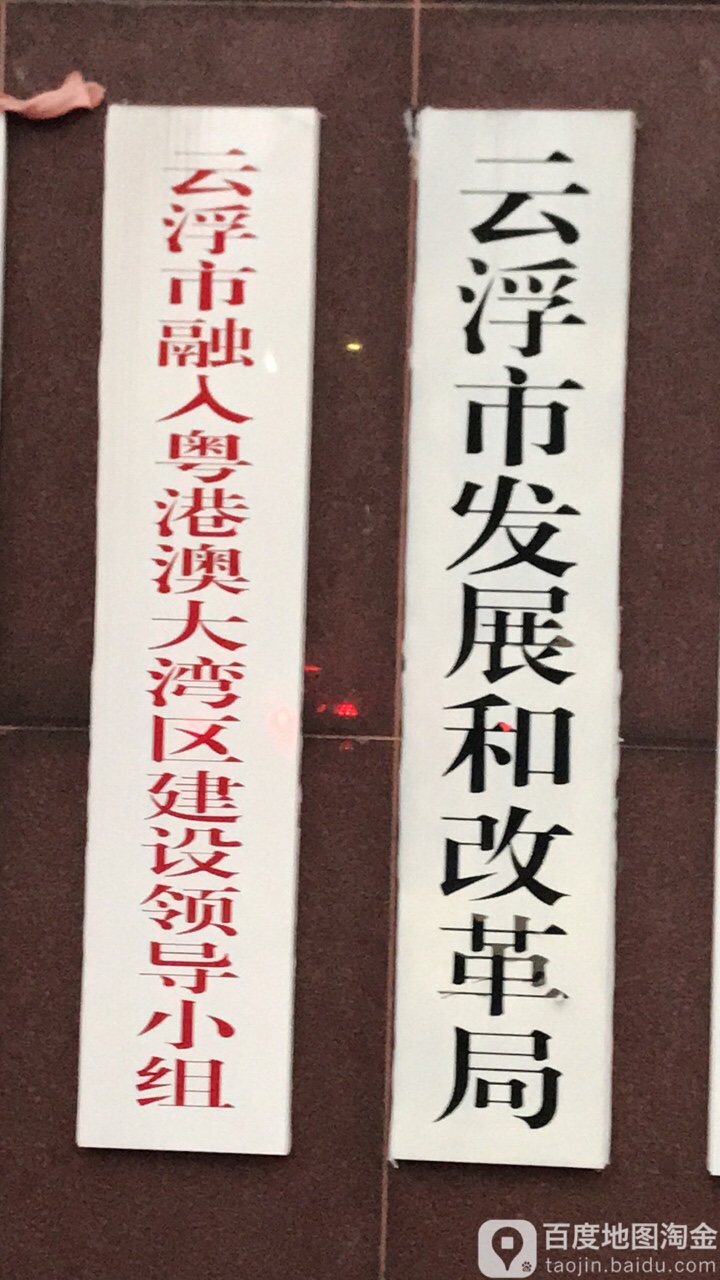 云浮市融入粤港澳大湾区建设领导小组
云浮市发展和改革局
百度地图淘金
taojin.baidu.com